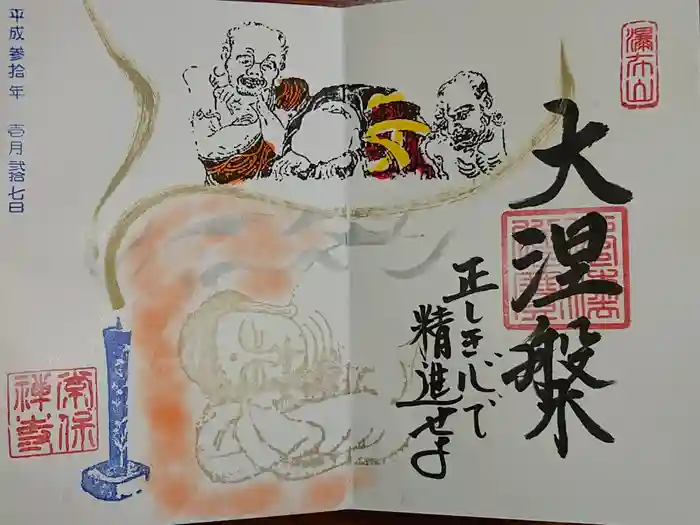 瀑布山
大涅槃
正しき心で
精進せよ
平成参拾年 壱月弐拾七日
常保
禅寺